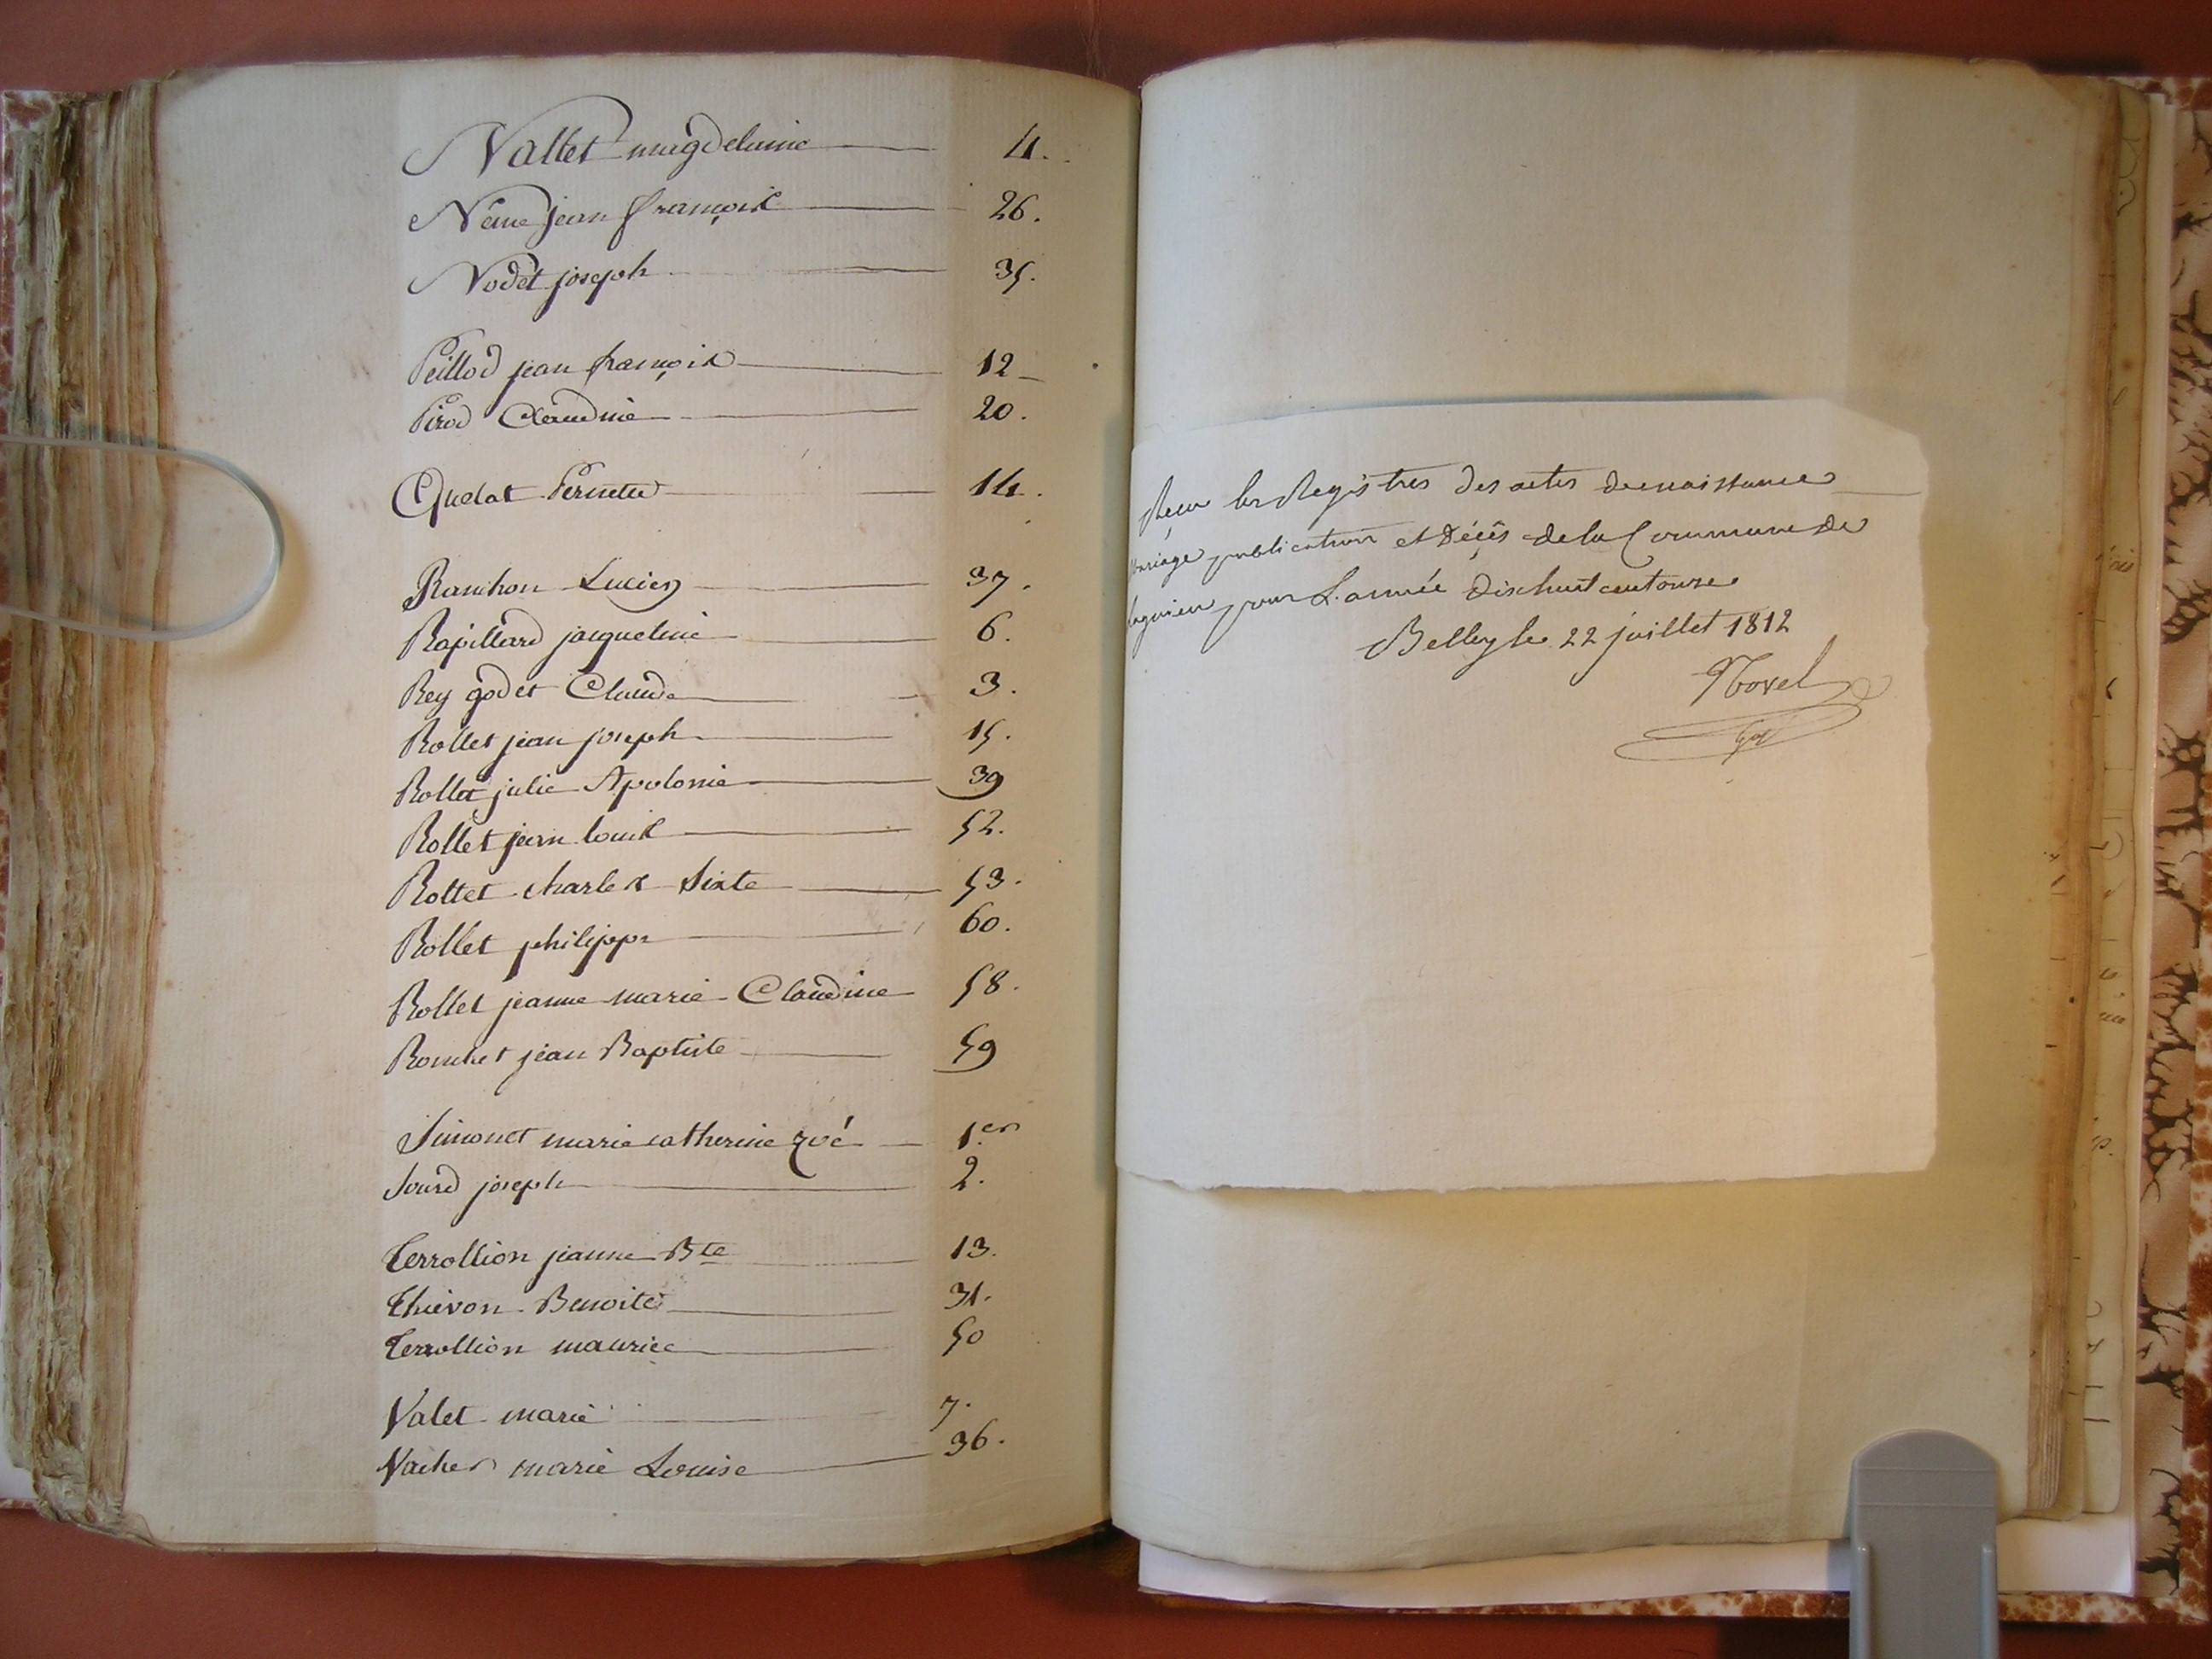 Nallet magdelaine 4.
Nême jean françois 26.
Nodet joseph 35.
Peillod jean françois 12
Pirod Claudine 20.
Quelat Pernette 14.
Ranchon Lucien 37.
Rapillard jacqueline 6.
Rey godet Claude 3.
Rollet jean joseph 15.
Rollet julie Apolonie 39
Rollet jean louis 52.
Rollet charles Sixte 53.
Rollet philippe 60.
Rollet jeanne marie Claudine 58.
Ronchet jean Baptiste 59
Simonet marie catherine zoé 1.er
Sourd joseph 2.
Terrollion jeanne Bte 13.
Thievon Benoite 31.
Terrollion maurice 50
Valet marie 7.
Vacher marie Louise 36.
Reçu les Registres des actes de naissance
mariage publication et Décès de la Commune de
lagnieu pour L'année dix huit cent onze
Belley le 22 juillet 1812